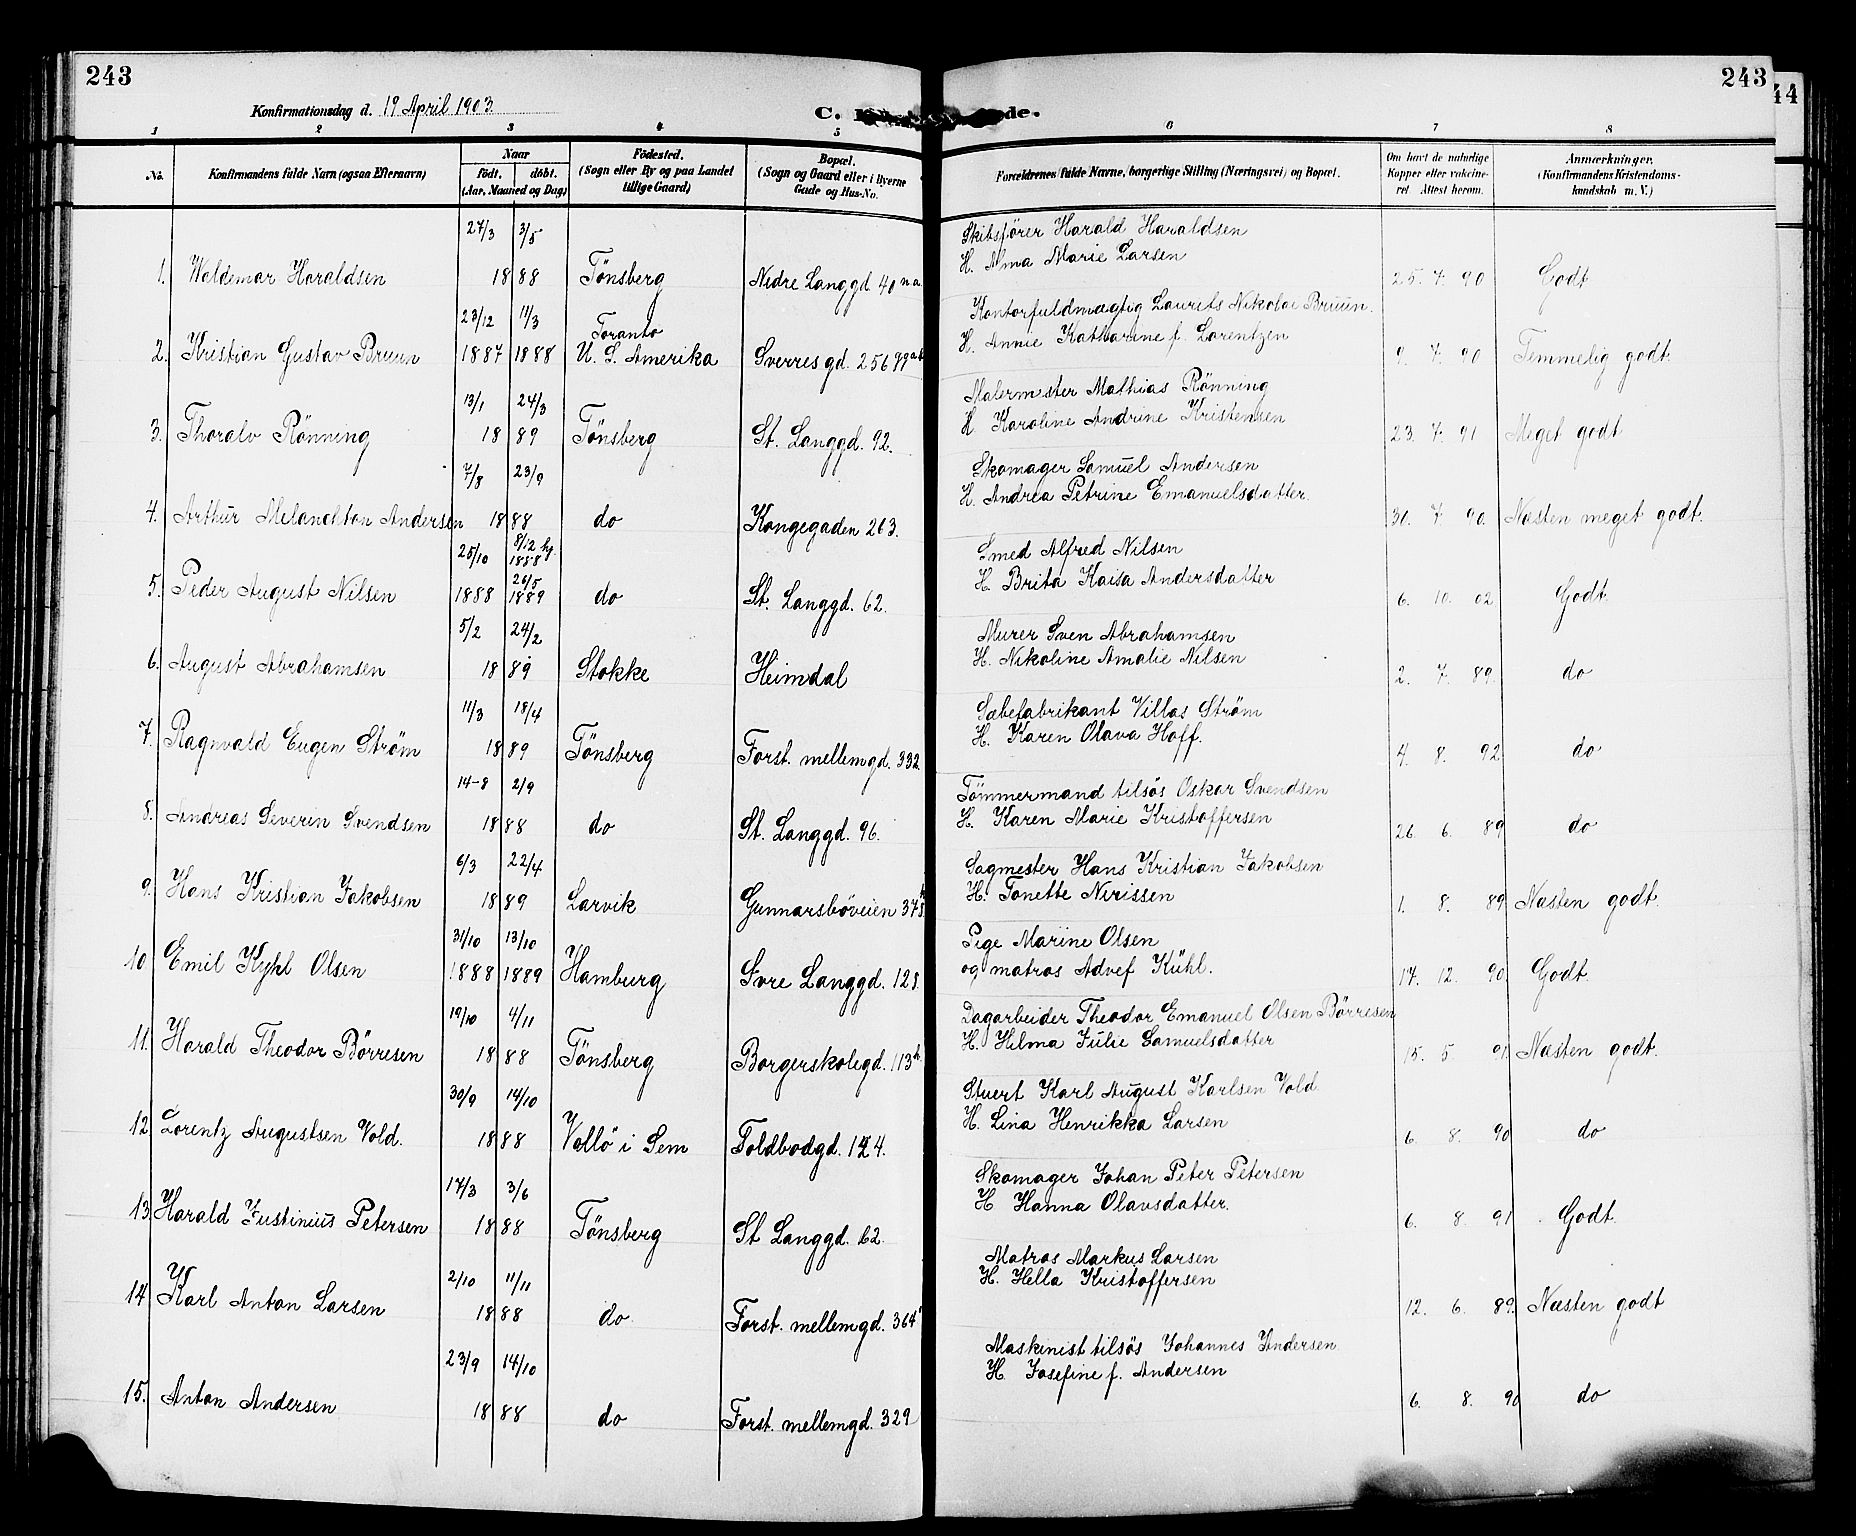 243
243
44
Konfirmationsdag d. 19 April 1903.
C. K de.
1 2 3 4 5 6 7 8
No.
Konfirmandens fulde Navn (ogsaa Efternavn)
Naar
födt. döbt.
(Aar, Maaned og Dag)
Födested.
(Sogn eller By og paa Landet
tillige Gaard)
Bopæl.
(Sogn og Gaard eller i Byerne
Gade og Hus-No.
Forældrenes fulde Navne, borgerlige Stilling (Næringsvei) og Bopæl.
Om havt de naturlige
Kopper eller vakcine-
ret. Attest herom.
Anmærkninger.
(Konfirmandens Kristendoms-
kundskab m. V.)
27/3 3/5 Skibsförer Harald Haraldsen
H. Alma Marie Larsen
1. Waldemar Haraldsen 1888 Tönsberg Nedre Langgd 40 n a 25. 7. 90 Godt
23/12 11/3 Toranto Kontorfuldmægtig Laurits Nikolai Bruun.
H. Annie Katharine f. Lorentzen
2. Kristian Gustav Bruun 1887 1888 U. S. Amerika Sverresgd. 256 99 ab 9. 7. 90 Temmelig godt.
13/1 24/3 Malermester Mathias Rönning
H Karoline Andrine Kristensen
3. Thoralv Rönning 1889 Tönsberg St. Langgd. 92. 23. 7. 91 Meget godt
7/8 23/9 Skomager Samuel Andersen
H. Andrea Petrine Emanuelsdatter.
4. Arthur Melanchton Andersen 1888 do Kongegaden 263. 30. 7. 90. Næsten meget godt.
25/10 8/12 hj. 1888 Smed Alfred Nilsen
26/5 H. Brita Kaisa Andersdatter
5. Peder August Nilsen 1888 1889 do St. Langgd. 62. 6. 10. 02 Godt.
5/2 24/2 Murer Sven Abrahamsen
H. Nikoline Amalie Nilsen
6. August Abrahamsen 1889 Stokke Heimdal 2. 7. 89. do
11/3 18/4 Sæbefabrikant Villas Ström
H. Karen Olava Hoff.
7. Ragnvald Eugen Ström 1889 Tönsberg Forst. mellemgd. 332. 4. 8. 92 do
14-8 2/9 Tömmermand tilsös Oskar Svendsen
H. Karen Marie Kristoffersen
8. Andreas Severin Svendsen 1888 do St. Langgd. 96. 26. 6. 89 do
6/3 22/4 Sagmester Hans Kristian Jakobsen
H. Tonette Nirissen
9. Hans Kristian Jakobsen 1889 Larvik Gunnarsböveien 375 1. 8. 89 Næsten godt.
31/10 13/10 Pige Marine Olsen
og matros Advef Kühl.
10. Emil Kyhl Olsen 1888 1889 Hamburg Svre Langgd. 128. 17. 12. 90 Godt.
19/10 4/11 Dagarbeider Theodor Emanuel Olsen Börresen
H. Hilma Julie Samuelsdatter
11. Harald Theodor Börresen 1888 Tönsberg Borgerskolegd. 113 h. 15. 5. 91 Næsten godt.
30/9 14/10 Stuert Karl August Karlsen Vold
H. Lina Henrikka Larsen
12. Lorentz Augustsen Vold. 1888 Vallö i Sem Toldbodgd. 124. 6. 8. 90 do
17/3 3/6 Skomager Johan Peter Petersen
H Hanna Olavsdatter.
13. Harald Justinius Petersen 1888 Tönsberg St Langgd. 62. 6. 8. 91 Godt.
2/10 11/11 Matros Markus Larsen
H. Hella Kristoffersen
14 Karl Anton Larsen 1888 do. Forst. mellemgd. 364 12. 6. 89. Næsten godt
23/9 14/10 Maskinist tilsös Johannes Andersen
H. Josefine f. Andersen
15. Anton Andersen 1888 do Forst. mellemgd. 329 6. 8. 90 do